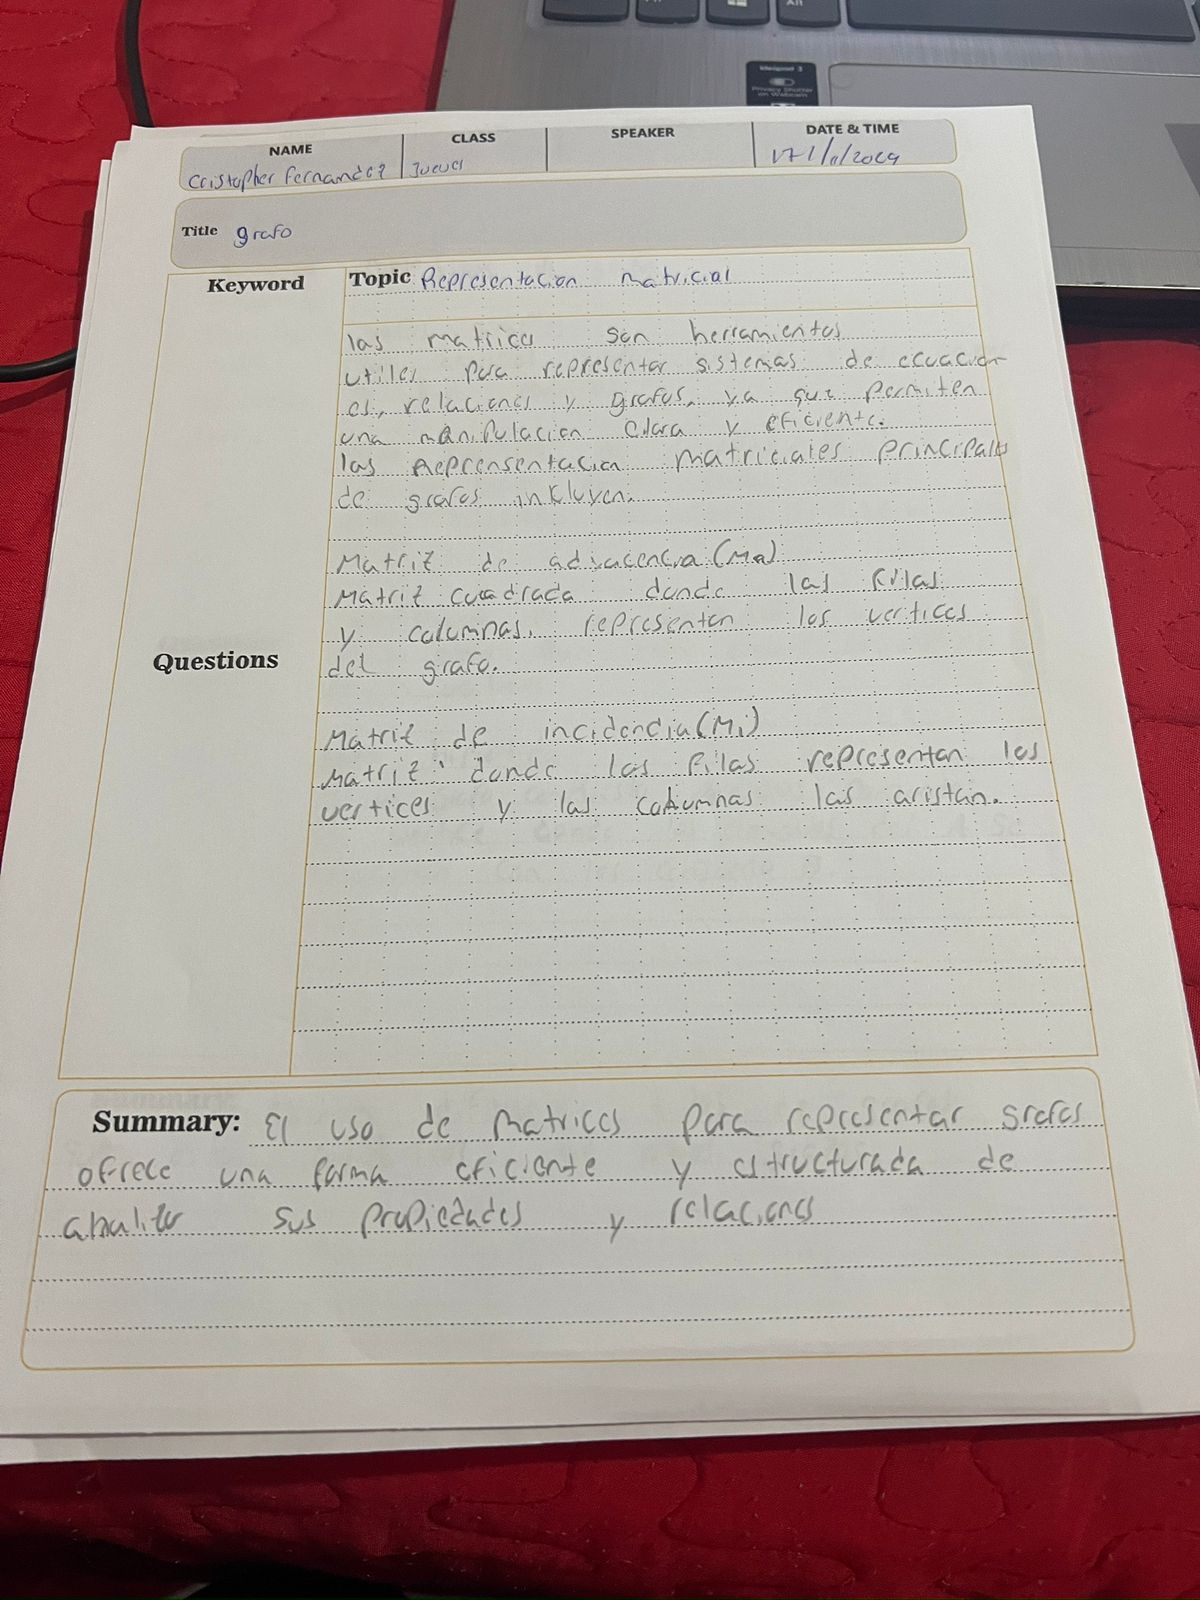 Alt
ideapad 3
Privacy Shutter
on Webcam
NAME CLASS SPEAKER DATE & TIME
Cristopher Fernandez Jueves
Title grafo
Keyword Topic Representacion matricial
las matrices son herramientas
utiles para representar sistemas de ecuacion
es, relaciones y grafos, ya que permiten
una manipulacion clara y eficiente.
las Reprensentacion matriciales principales
de grafos inkluyen.
Matriz de adyacencia (Ma)
Matriz cuadrada donde las filas
y columnas, representan los vertices
Questions del grafo.
Matriz de incidencia (Mi)
Matriz donde las filas representan los
vertices y las columnas las aristan.
Summary: El uso de matrices para representar grafos
ofrece una forma eficiente y estructurada de
analizar sus propiedades y relaciones